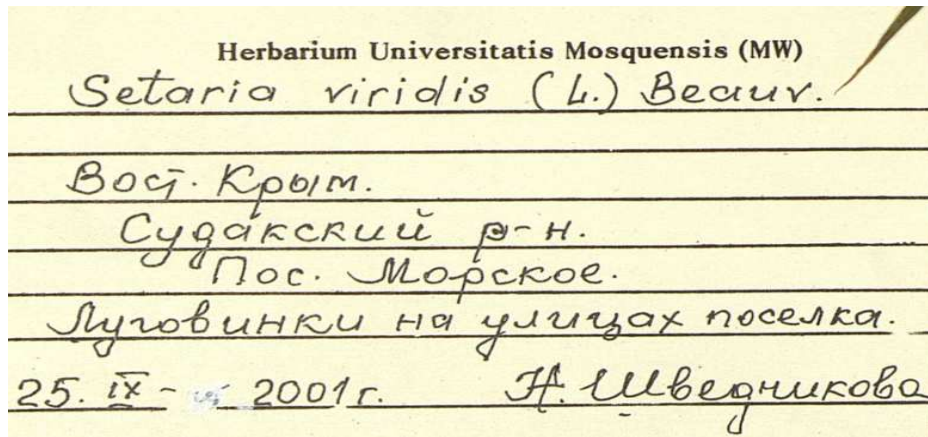 Herbarium Universitatis Mosquensis (MW)
Setaria viridis (L.) Beauv.
Вост. Крым.
Судакский р-н.
Пос. Морское.
Луговинки на улицах поселка.
25. IX - 2001 г. Н. Шведчикова